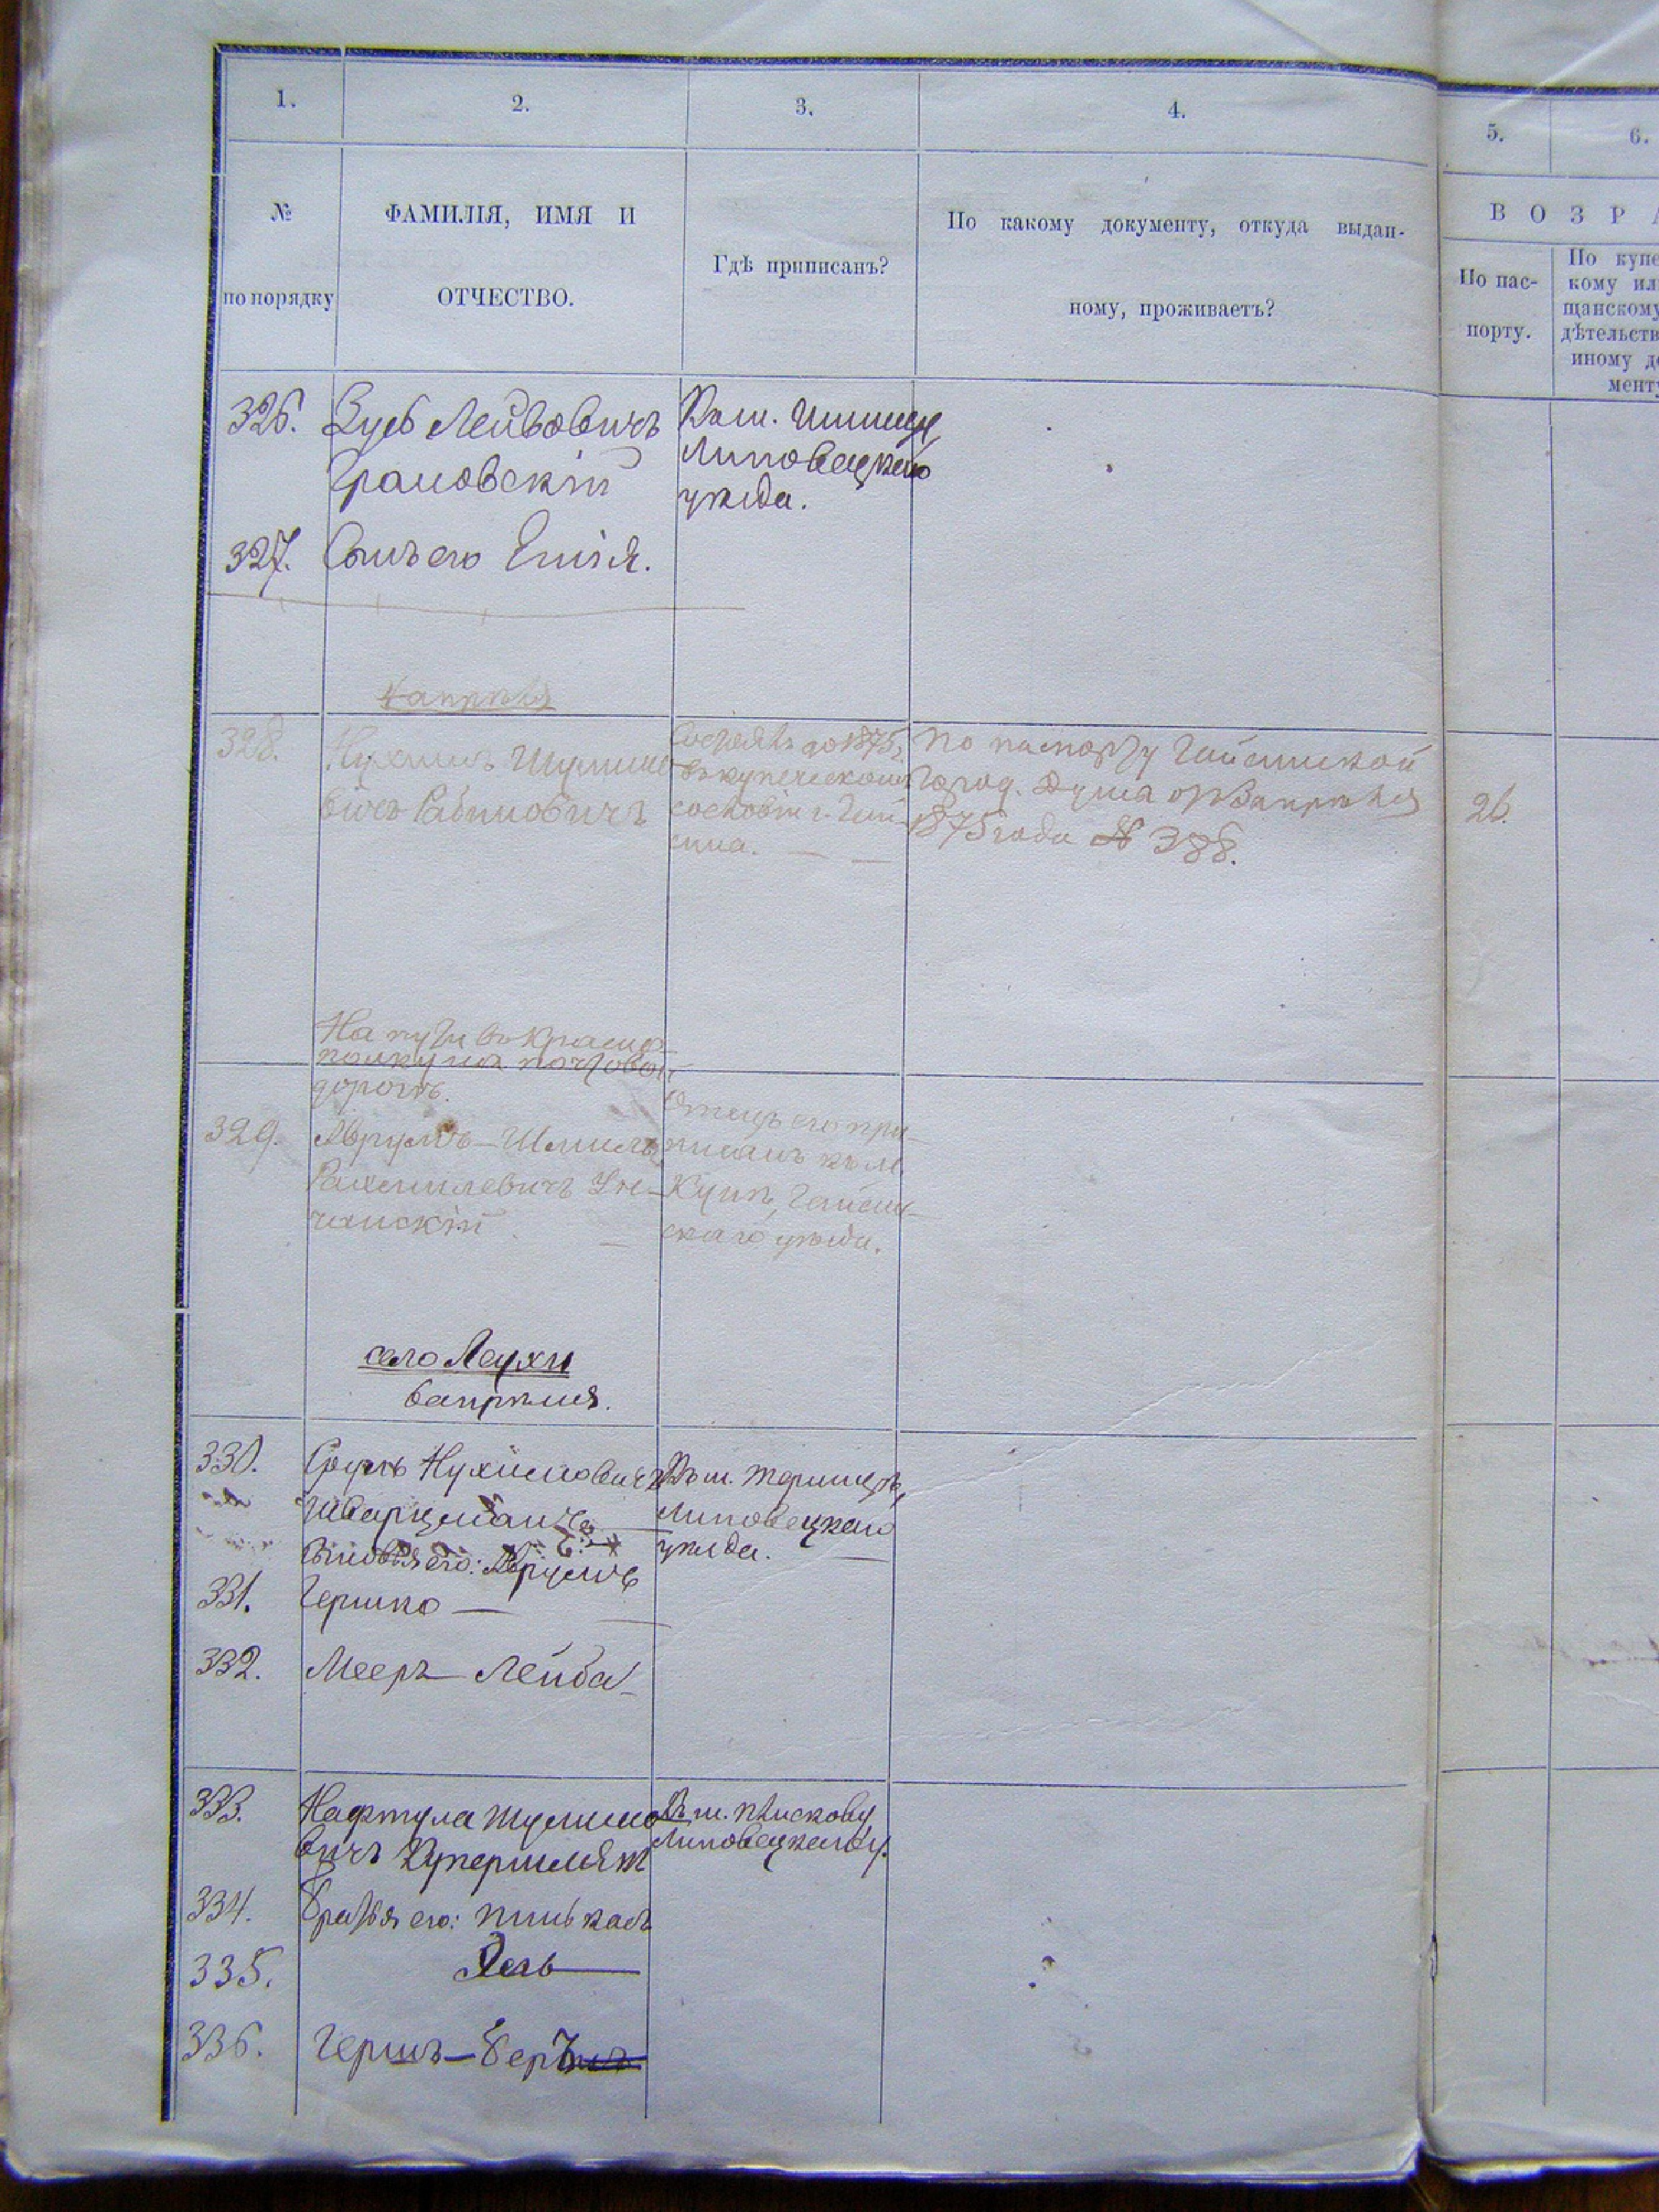 1.
2.
3.
4.
5.
6.
№
по порядку
ФАМИЛІЯ, ИМЯ И
ОТЧЕСТВО.
Гдѣ приписанъ?
По какому документу, откуда выдан-
ному, проживаетъ?
ВОЗРА
По пас-
порту.
По купе
кому ил
щанскому
дѣтельств
иному до
менту
326. Зусь Лейбовичъ
Грановскій
Къ м.
Липовецкаго
уѣзда.
327. Сынъ его Ешія.
4 апрѣля
328. Нухимъ
вичъ Рабиновичъ
Состоялъ до 1875 г.
въ купеческомъ
сословіи г. Гай-
сина.
По паспорту Гайсинской
Город. Дума отъ 3 апрѣля
1875 года № 388.
26.
На пути въ Красно-
полку на почтовой
дорогѣ.
329. Аврумъ-Шмиль
Рахмилевичъ
Отецъ его при-
писанъ къ м.
Кунѣ, Гайсин-
скаго уѣзда.
село Леухи
6 апрѣля.
330. Сруль Нухимовичъ
Шварцманъ
Сыновья его: Аврумъ
Къ м.
Липовецкаго
уѣзда.
331. Гершко
332. Мееръ-Лейба
333. Нафтула
вичъ
Къ м. Пискову
Липовецкаго у.
334. Братья его: Пинькасъ
335.
336. Гершъ-Беръ